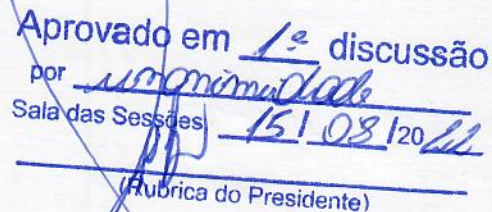 Aprovado em 1ª discussão
por unanimidade
Sala das Sessões 15/08/2022
(Rubrica do Presidente)